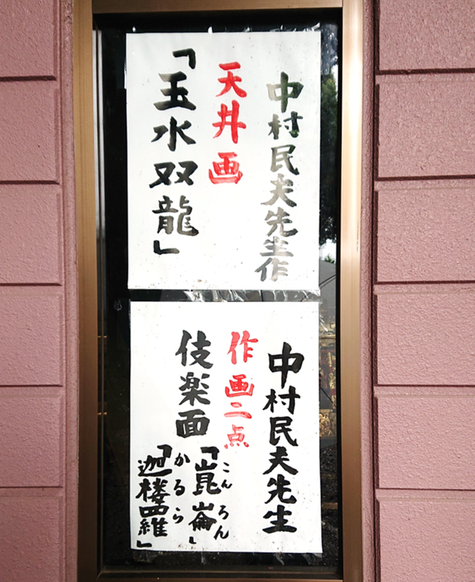 中村民夫先生作
天井画
「玉水双龍」
中村民夫先生
作画二点
伎楽面
「崑崙」
こんろん
「迦楼羅」
かるら